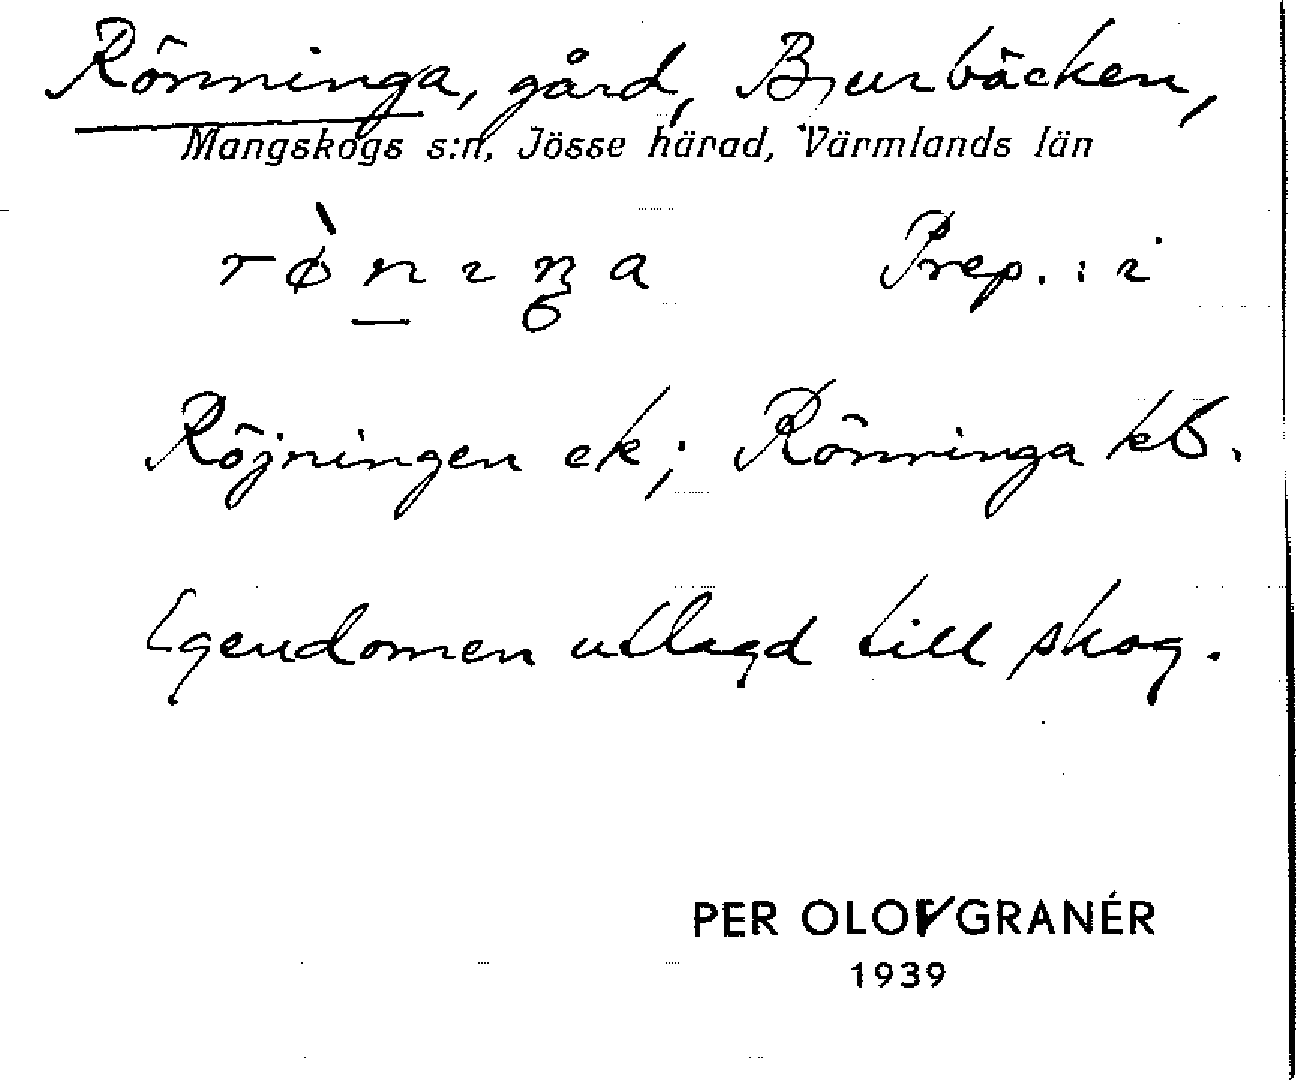 Rönninga, gård, Bjurbäcken,
Mangskogs s:n, Jösse härad, Värmlands län
Prep. : i
Röjningen ek; Rönninga kb.
Egendomen utlagd till skog.
PER OLOV GRANÉR
1939